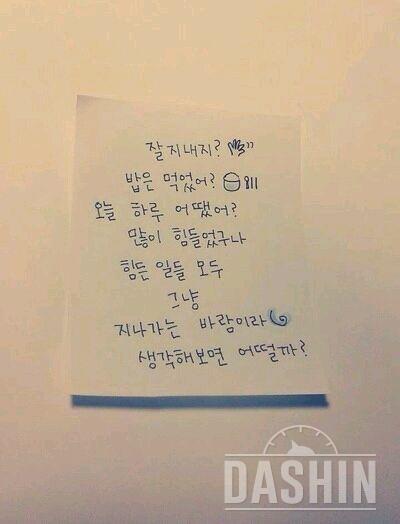 잘 지내지?
밥은 먹었어?
오늘 하루 어땠어?
많이 힘들었구나
힘든 일들 모두
그냥
지나가는 바람이라
생각해보면 어떨까?
DASHIN